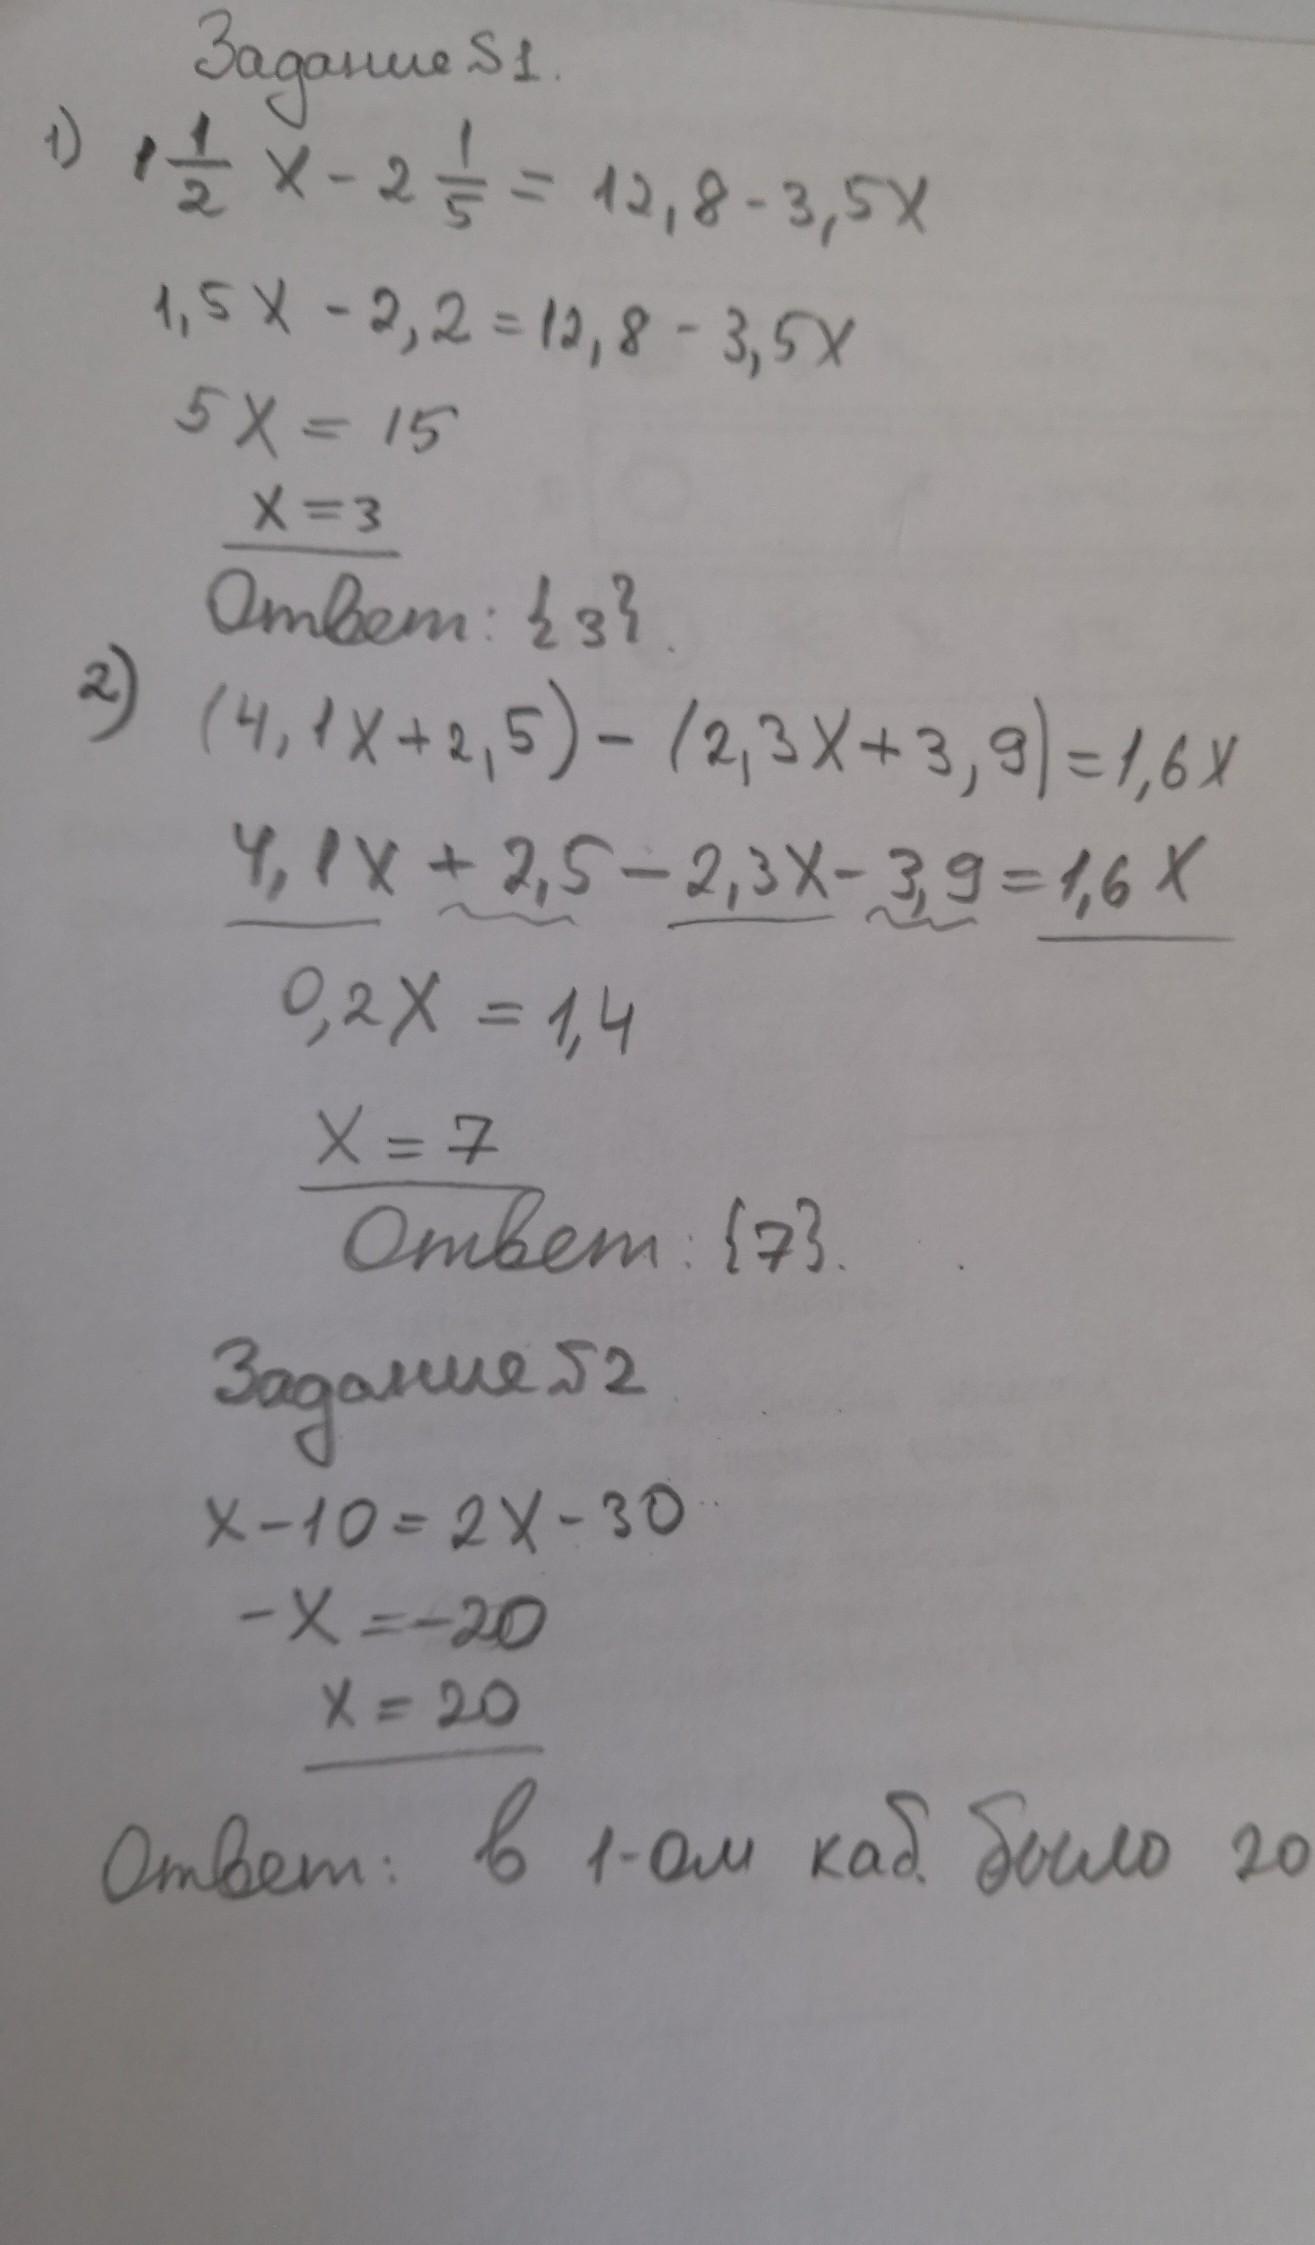 Задание S1.
1) 1 1/2 x - 2 1/5 = 12,8 - 3,5x
1,5x - 2,2 = 12,8 - 3,5x
5x = 15
x = 3
Ответ: {3}.
2) (4,1x + 2,5) - (2,3x + 3,9) = 1,6x
4,1x + 2,5 - 2,3x - 3,9 = 1,6x
0,2x = 1,4
x = 7
Ответ: {7}.
Задание S2
x - 10 = 2x - 30
-x = -20
x = 20
Ответ: в 1-ом каб. было 20